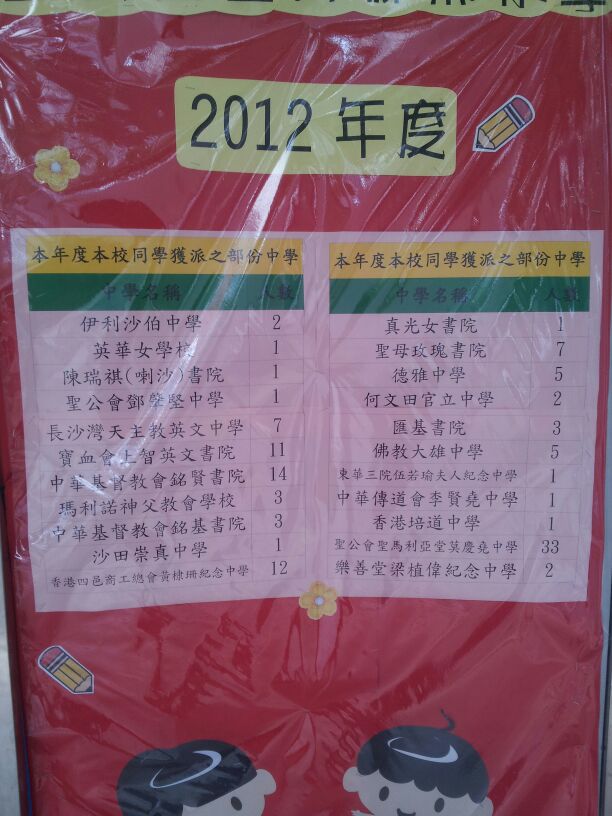 2012 年度
本年度本校同學獲派之部份中學
中學名稱 人數
伊利沙伯中學 2
英華女學校 1
陳瑞祺(喇沙)書院 1
聖公會鄧肇堅中學 1
長沙灣天主教英文中學 7
寶血會上智英文書院 11
中華基督教會銘賢書院 14
瑪利諾神父教會學校 3
中華基督教會銘基書院 3
沙田崇真中學 1
香港四邑商工總會黃棣珊紀念中學 12
本年度本校同學獲派之部份中學
中學名稱 人數
真光女書院 1
聖母玫瑰書院 7
德雅中學 5
何文田官立中學 2
匯基書院 3
佛教大雄中學 5
東華三院伍若瑜夫人紀念中學 1
中華傳道會李賢堯中學 1
香港培道中學 1
聖公會聖馬利亞堂莫慶堯中學 33
樂善堂梁植偉紀念中學 2